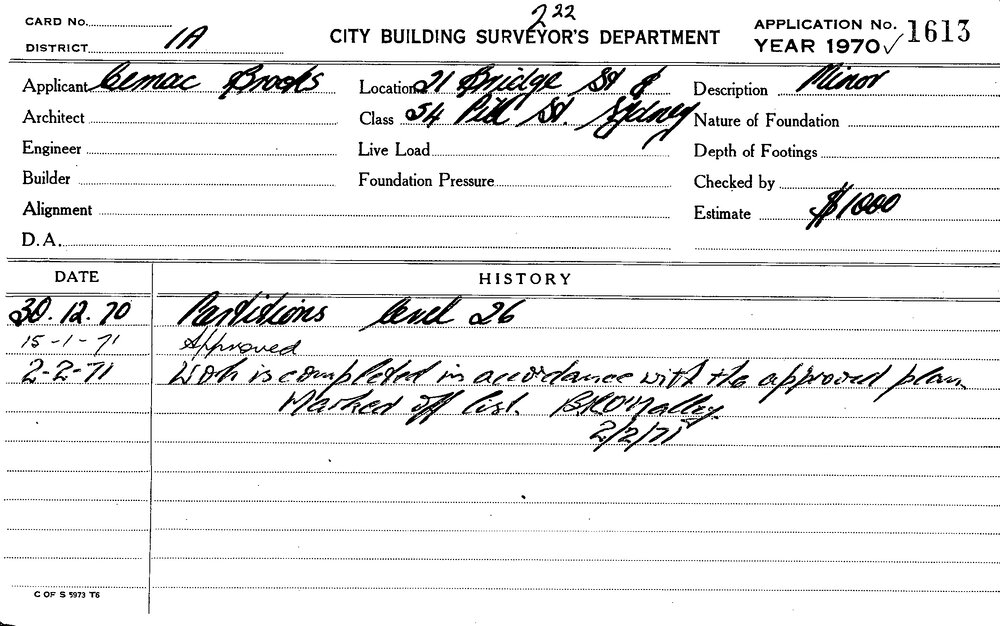 222
CARD No.
DISTRICT 1A
CITY BUILDING SURVEYOR'S DEPARTMENT
APPLICATION No. 1613
YEAR 1970 ✓
Applicant Cemac Brooks
Location 21 Bridge St &
Description Minor
Architect
Class 54 Pitt St. Sydney
Nature of Foundation
Engineer
Live Load
Depth of Footings
Builder
Foundation Pressure
Checked by
Alignment
Estimate $1000
D.A.
DATE HISTORY
30.12.70 Partitions level 26
15-1-71 Approved
2-2-71 Work is completed in accordance with the approved plan
Marked off list. B.R.O'Malley
2/2/71
C OF S 5973 T6